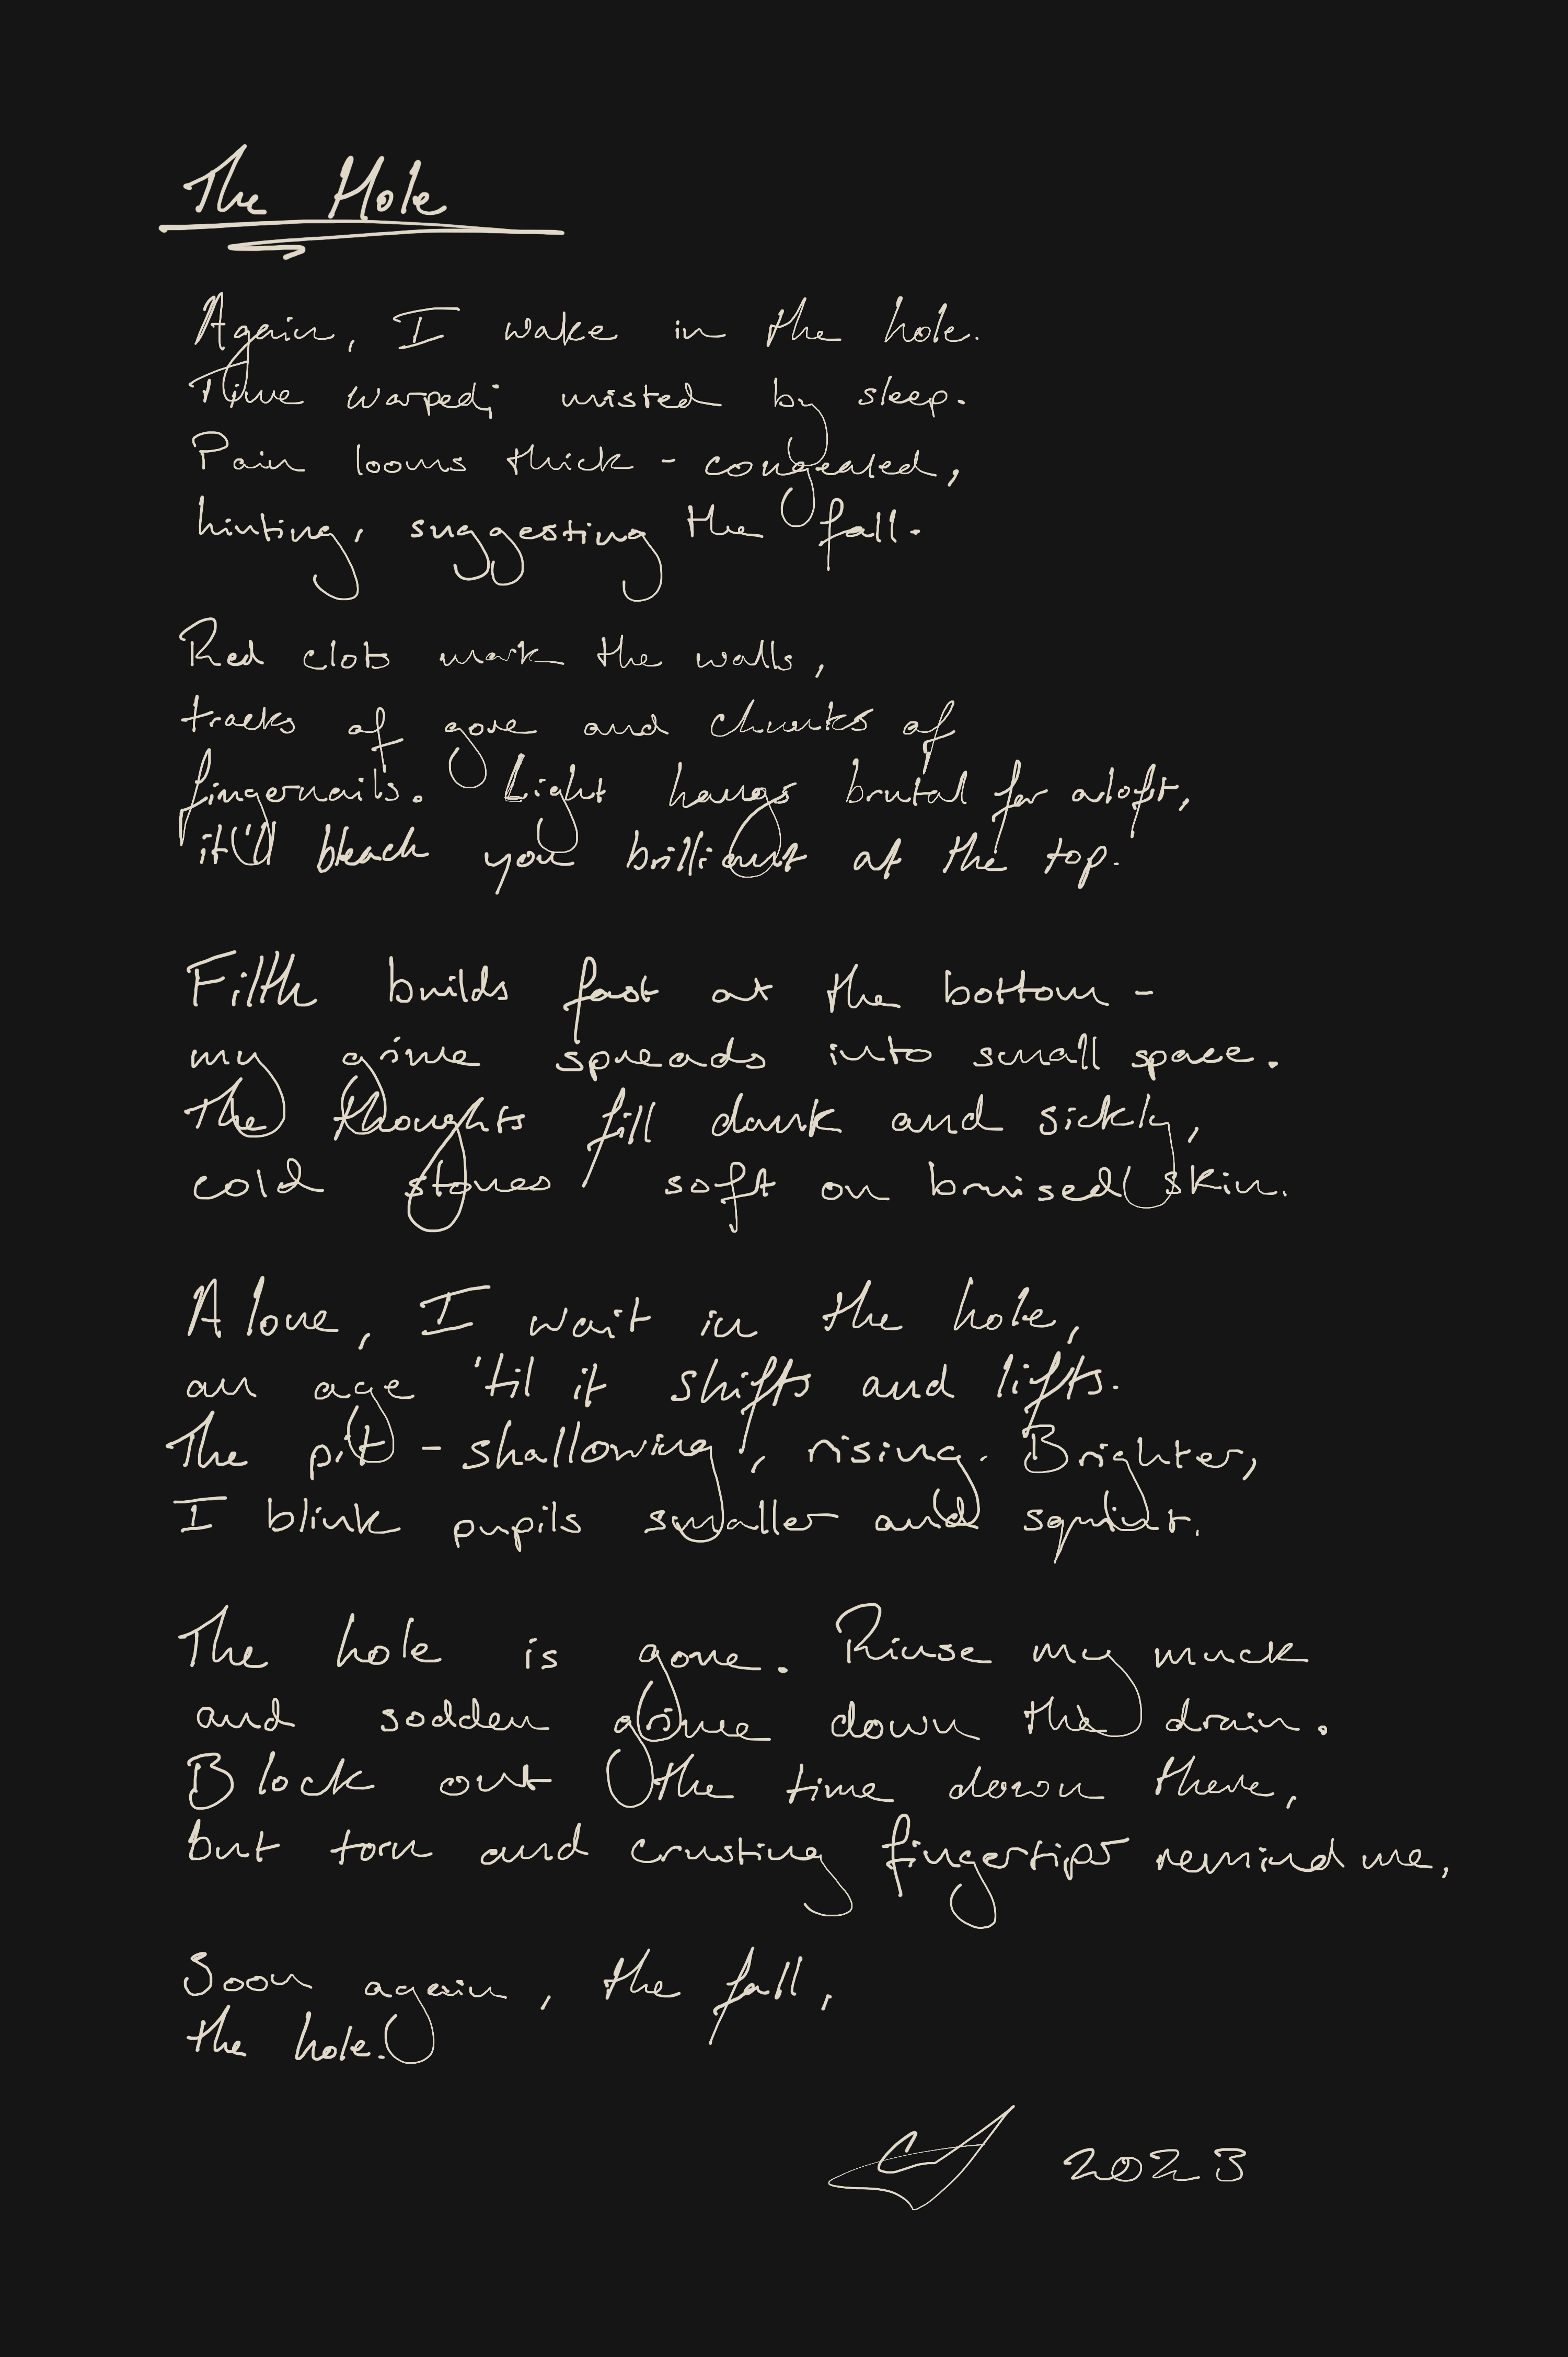 The Hole
Again, I wake in the hole.
Time warped; misted by sleep.
Pain looms thick - congealed,
hinting, suggesting the fall.
Red clots mark the walls,
tracks of gore and chunks of
fingernails. Light hangs brutal far aloft,
it'll bleach you brilliant at the top.
Filth builds fast at the bottom -
my grime spreads into small space.
The thoughts fill dank and sickly,
cold stones soft on bruised skin.
Alone, I wait in the hole,
an age 'til it shifts and lifts.
The pit - shallowing, rising. Brighter,
I blink pupils smaller and squint.
The hole is gone. Rinse my muck
and sodden grime down the drain.
Block out the time down there,
but torn and crusting fingertips remind me,
Soon again, the fall,
the hole.
2023